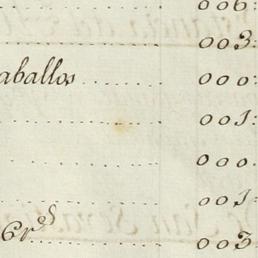 006:
003:
aballos 000:
001:
000.
001:
6rs 003: